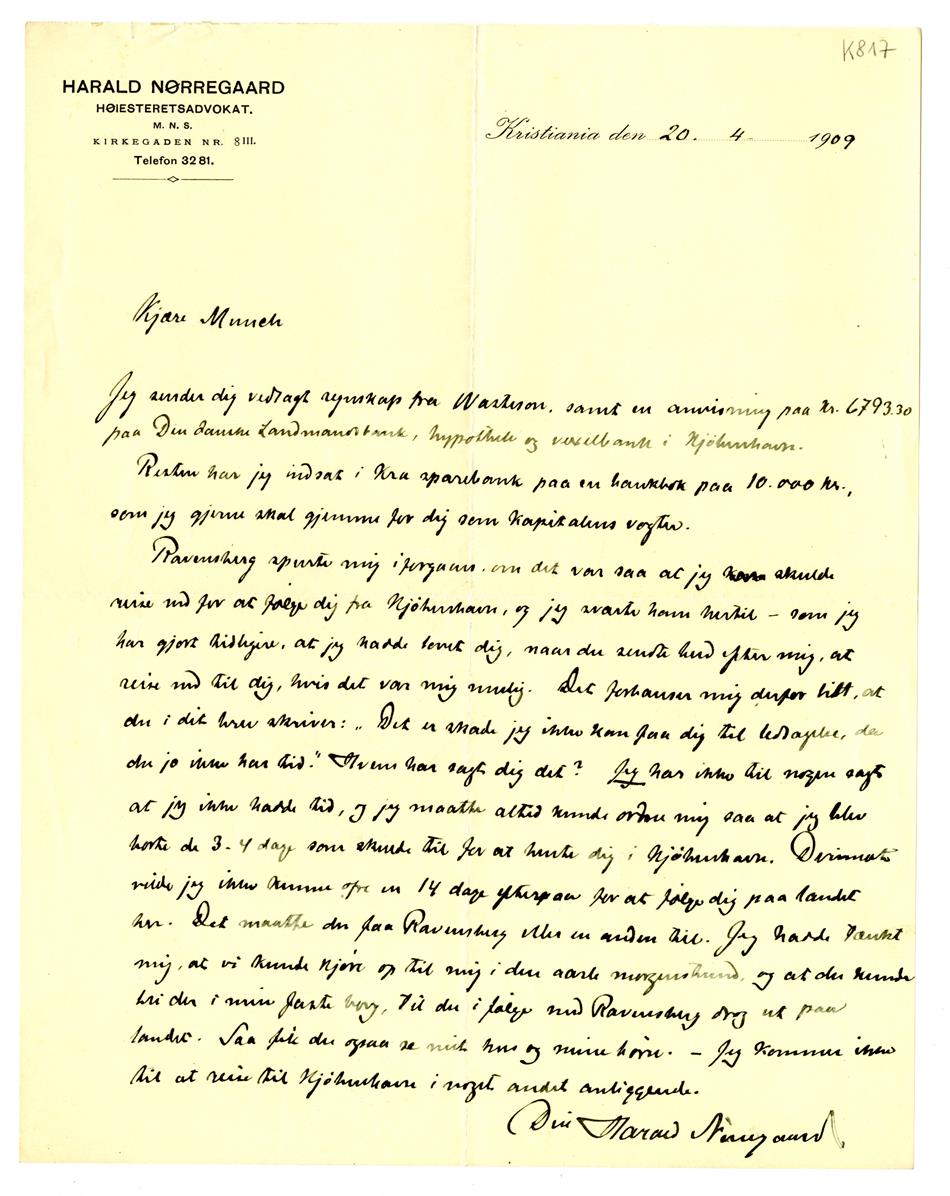 K817
HARALD NØRREGAARD
HØIESTERETSADVOKAT.
M. N. S.
KIRKEGADEN NR. 8 III.
Telefon 32 81.
Kristiania den 20. 4 1909
Kjære Munch
Jeg sender dig vedlagt regnskap fra samt en anvisning paa Kr. 6793.30
paa Den danske Landmandsbank, hypothek og vexelbank i Kjøbenhavn.
Resten har jeg indsat i Kra sparebank paa en bankbok paa 10.000 kr.,
som jeg gjerne skal gjemme for dig som kapitalens vogter.
Ravensberg spurte mig iforgaars om det var saa at jeg skulde
reise ned for at følge dig fra Kjøbenhavn, og jeg svarte ham hertil – som jeg
har gjort tidligere, at jeg hadde lovet dig, naar du sendte bud efter mig, at
reise ned til dig, hvis det var mig mulig. Det forbauser mig derfor litt, at
du i dit brev skriver: „Det er skade jeg ikke kan faa dig til ledsagelse, da
du jo ikke har tid." Hvem har sagt dig det? Jeg har ikke til nogen sagt
at jeg ikke hadde tid, og jeg maatte altid kunde ordne mig saa at jeg blev
borte de 3-4 dage som skulde til for at hente dig i Kjøbenhavn. Derimot
vilde jeg ikke kunne ofre en 14 dage efterpaa for at følge dig paa landet
her. Det maatte du faa Ravensberg eller en anden til. Jeg hadde tænkt
mig, at vi kunde kjøre op til mig i den aarle morgenstund, og at du kunde
bli der i min faste borg, til du i følge med Ravensberg drog ut paa
landet. Saa fik du ogsaa se mit hus og mine børn. – Jeg kommer ikke
til at reise til Kjøbenhavn i noget andet anliggende.
Din Harald Nørregaard.